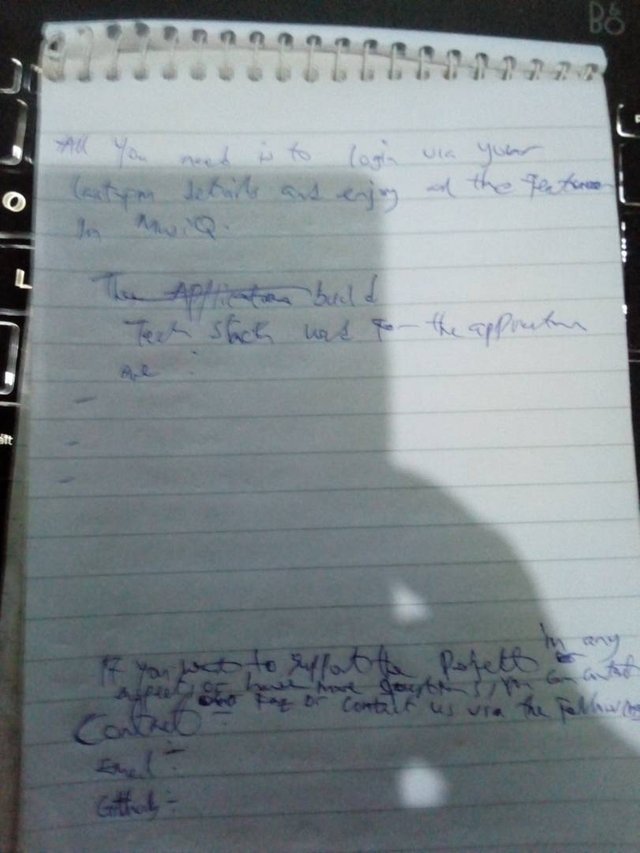 All You need is to login via your
details and enjoy all the Features
In MwiQ.
The Application build
Tech Stack used For the application
are :
-
-
-
If you want to support the Project In any
or have more questions, you can contact
Faq or contact us via the Following
Contact -
Email :-
Github :-